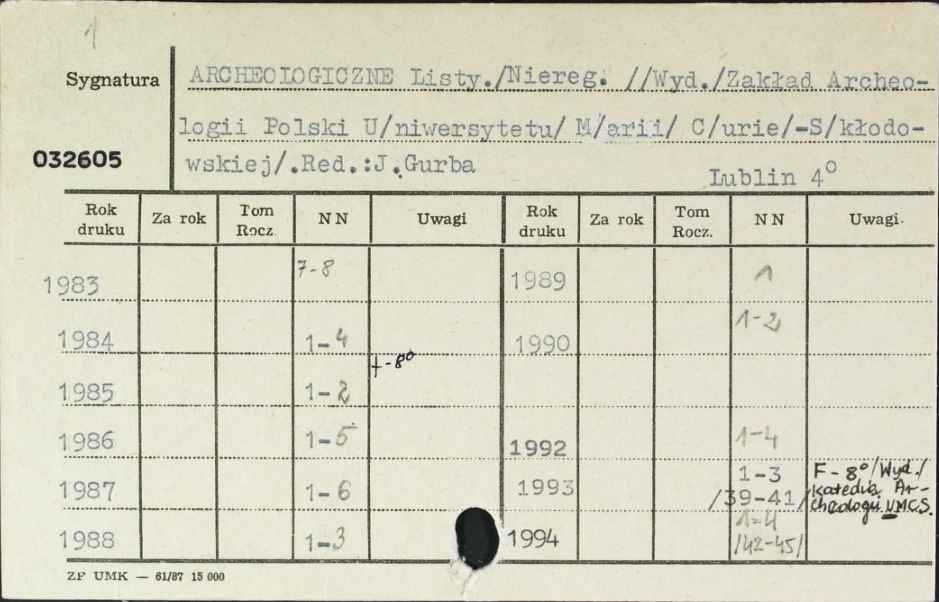 1
Sygnatura ARCHEOLOGICZNE Listy./Niereg. //Wyd./Zakład Archeo-
logii Polski U/niwersytetu/ M/arii/ C/urie/-S/kłodo-
032605 wskiej/.Red.:J.Gurba
Lublin 4°
Rok druku Za rok Tom Rocz. NN Uwagi Rok druku Za rok Tom Rocz. NN Uwagi
1983 7-8 1989 1
1984 1-4 1990 1-2
f-8°
1985 1-2
1986 1-5 1992 1-4
1987 1-6 1993 1-3 /39-41/ F-8°/Wyd./ Katedra Ar- cheologii UMCS.
1988 1-3 1994 1-4 /42-45/
ZP UMK — 61/87 15 000